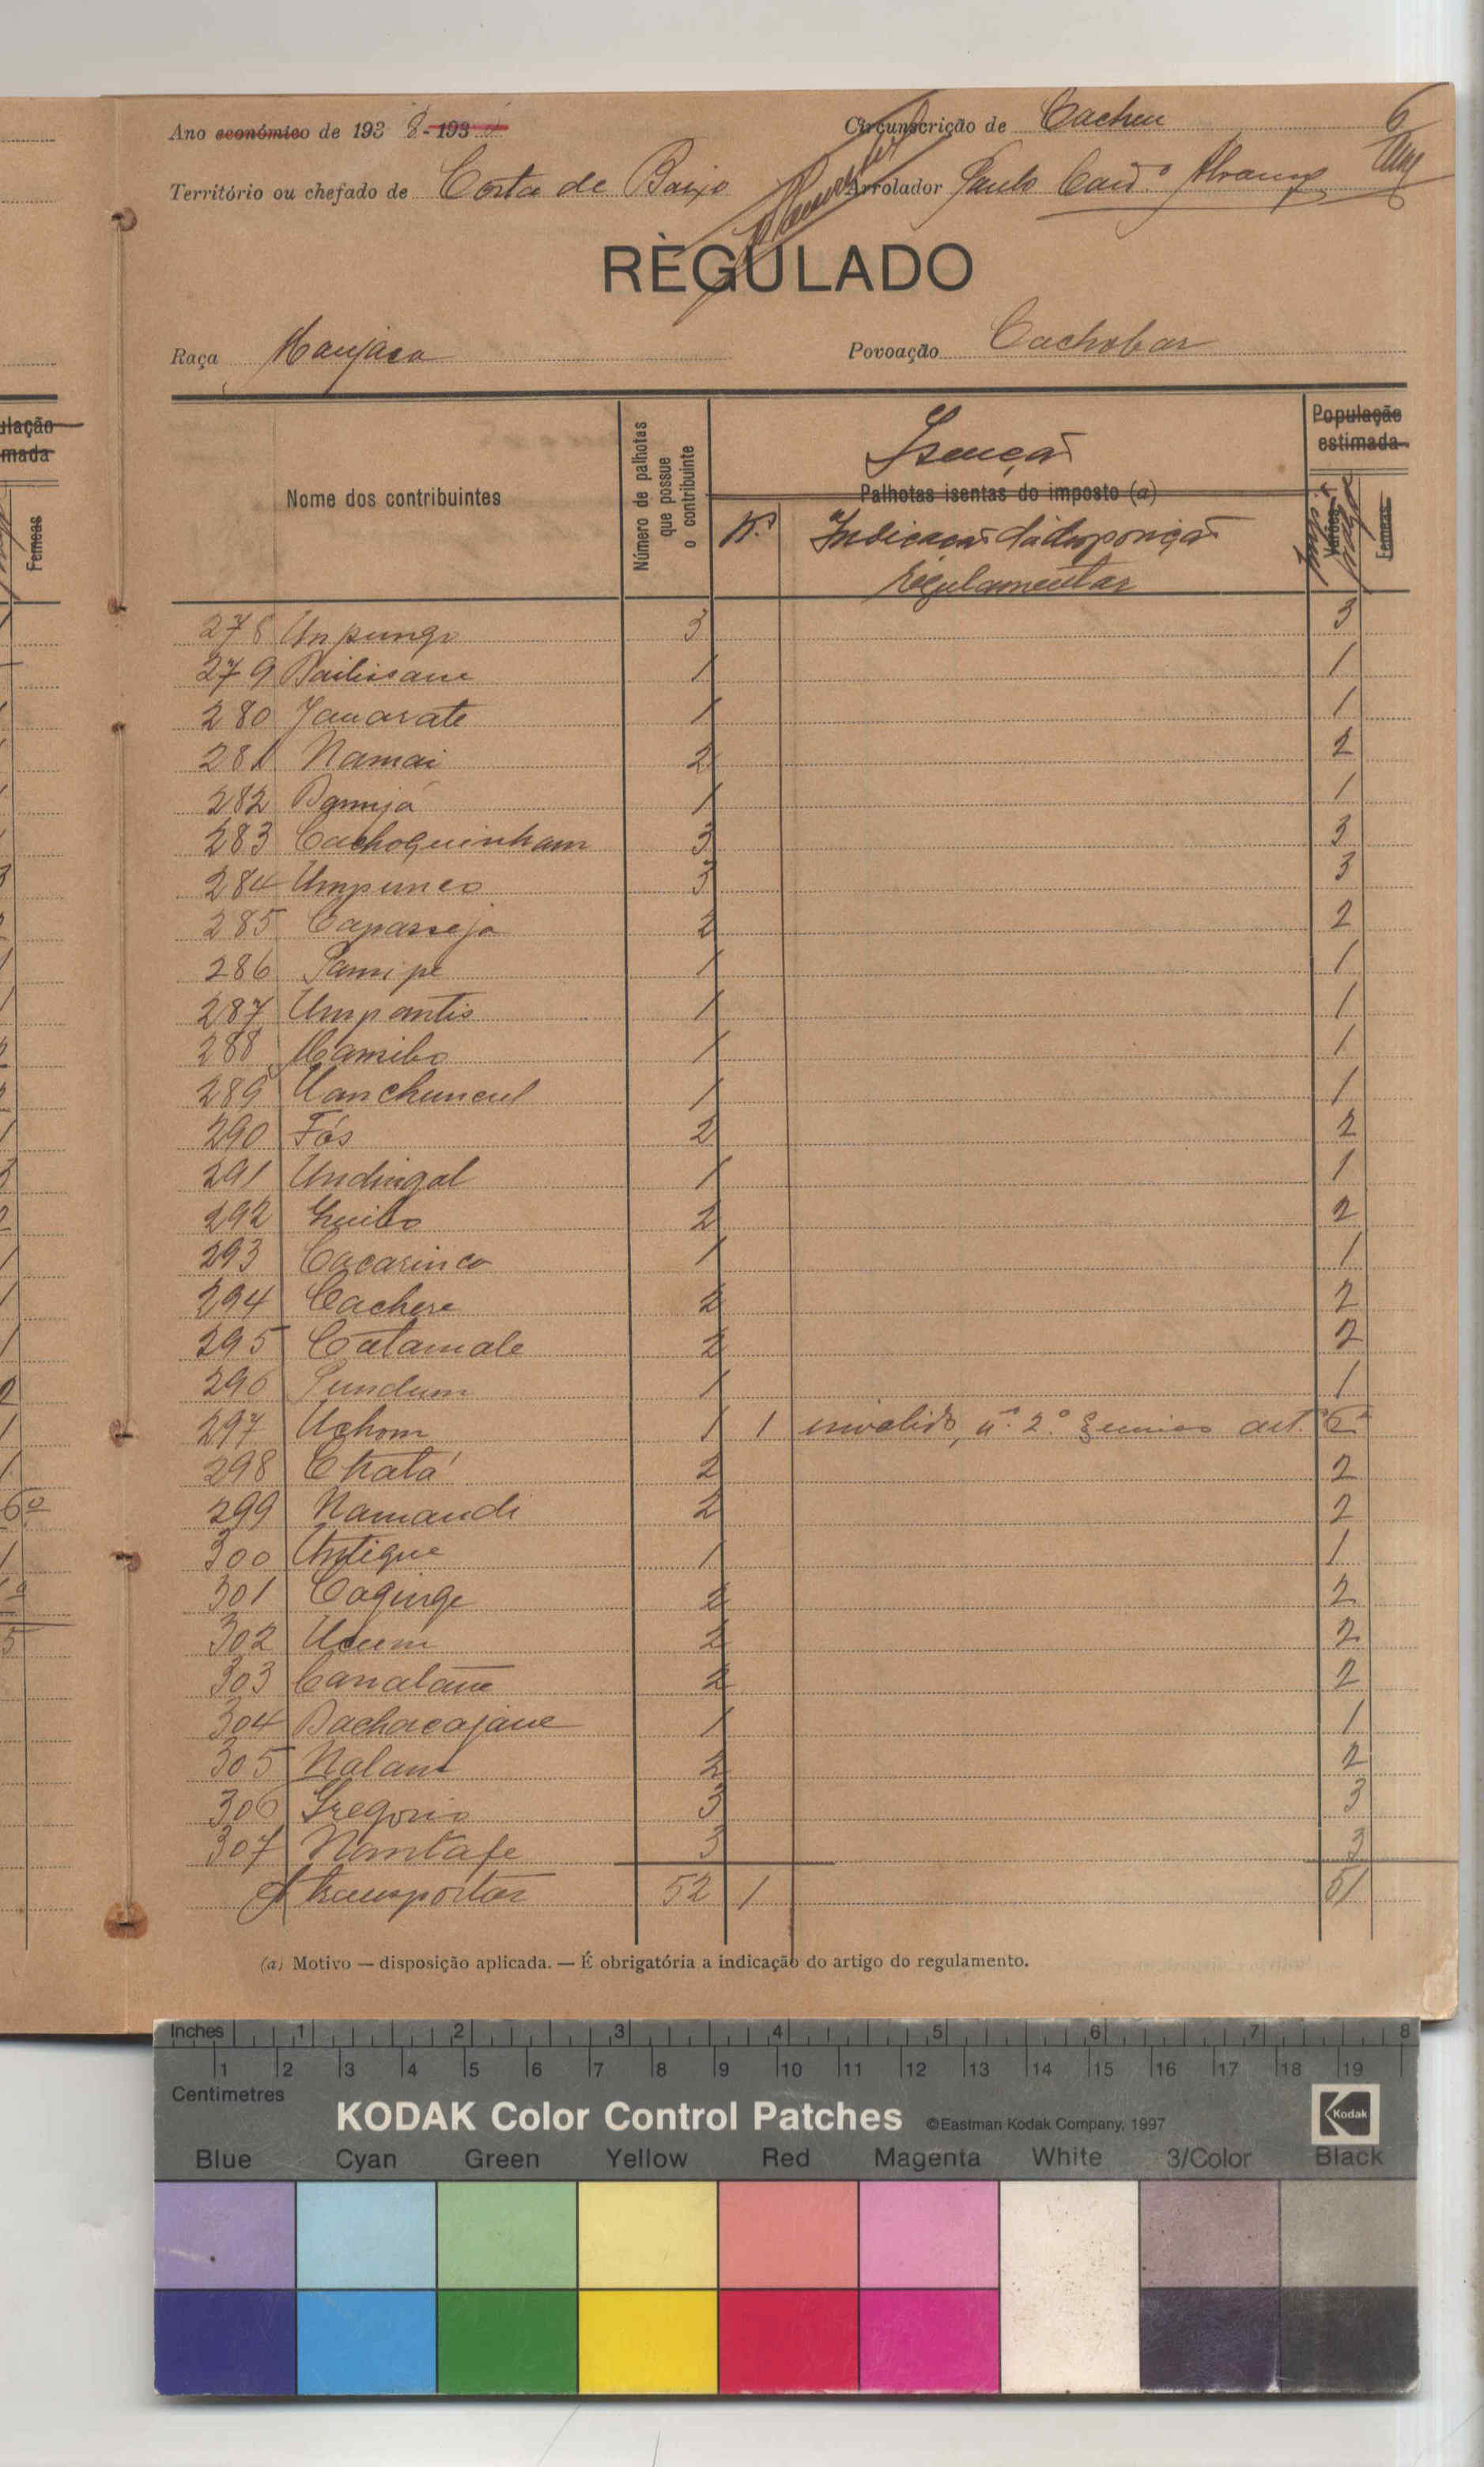 Ano económico de 193 8 - 193
Circunscrição de Cacheu
6
Território ou chefado de Costa de Baixo
Arrolador Paulo Card.º
RÈGULADO
Raça Manjaca
Povoação Cachobar
Nome dos contribuintes
Número de palhotas que possue o contribuinte
Isenção
Palhotas isentas do imposto (a)
N.º
Indicação da disposição
regulamentar
População estimada
Varões
Femeas
ulação
mada
Femeas
278 Unpungo 3 3
279 Bailisane 1 1
280 Janarate 1 1
281 Namai 2 2
282 Bamijá 1 1
283 Cachoquinham 3 3
284 Umpunco 3 3
285 Capasseja 2 2
286 Samipe 1 1
287 Umpantis 1 1
288 Mamibo 1 1
289 Uanchuncul 1 1
290 Fós 2 2
291 Undingal 1 1
292 Guibo 2 2
293 Cacarinco 1 1
294 Cachere 2 2
295 Catamale 2 2
296 Pundum 1 1
297 Uchom 1 1 invalido, n.º 2.º art.º 6º
298 Chatá 2 2
299 Namandi 2 2
300 Untique 1 1
301 Caginge 2 2
302 2 2
303 Canalane 2 2
304 Bachacajane 1 1
305 Nalant 2 2
306 Gregorio 3 3
307 Nantafe 3 3
A transportar 52 1 51
(a) Motivo — disposição aplicada. — É obrigatória a indicação do artigo do regulamento.
Inches 1 2 3 4 5 6 7 8
1 2 3 4 5 6 7 8 9 10 11 12 13 14 15 16 17 18 19
Centimetres
KODAK Color Control Patches ©Eastman Kodak Company, 1997 Kodak
Blue Cyan Green Yellow Red Magenta White 3/Color Black